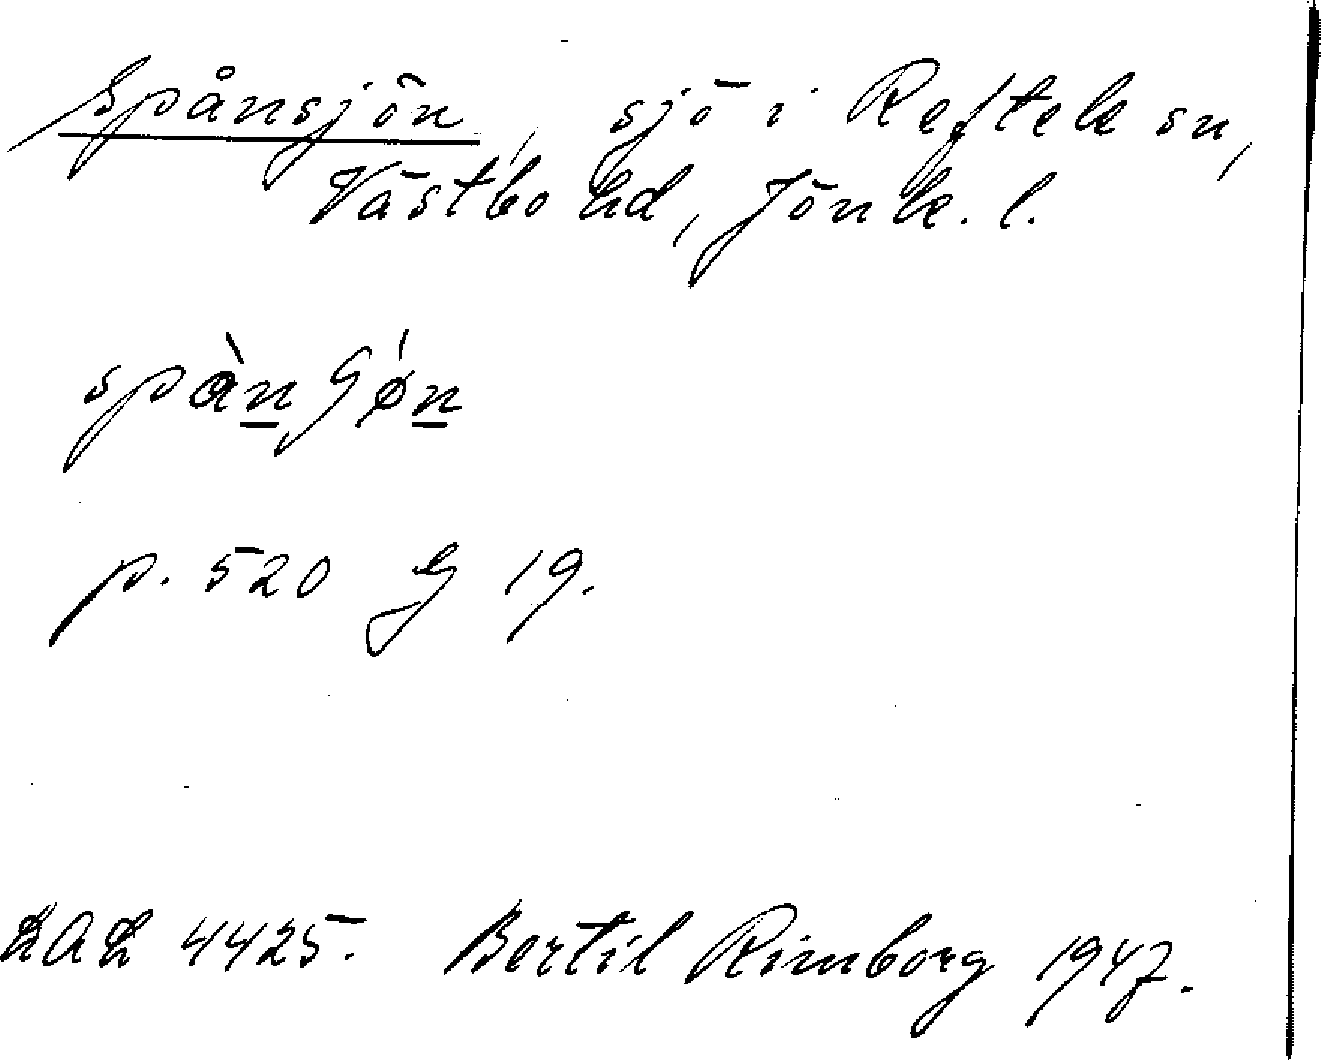 Spånsjön, sjö i Reftele sn,
Västbo hd, Jönk. l.
spànʃǿn
p. 520 G 19.
LAL 4425. Bertil Rimborg 1947.